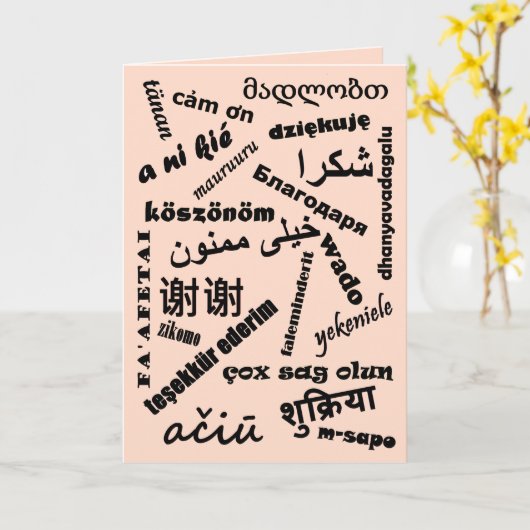 tänan
cảm ơn
მადლობთ
dziękuję
a ni kié
mauruuru
شكرا
dhanyavadagalu
Благодаря
köszönöm
خیلی ممنون
wado
FA'AFETAI
谢谢
faleminderit
zikomo
yekeniele
teşekkür ederim
çox sag olun
शुक्रिया
ačiū
m-sapo